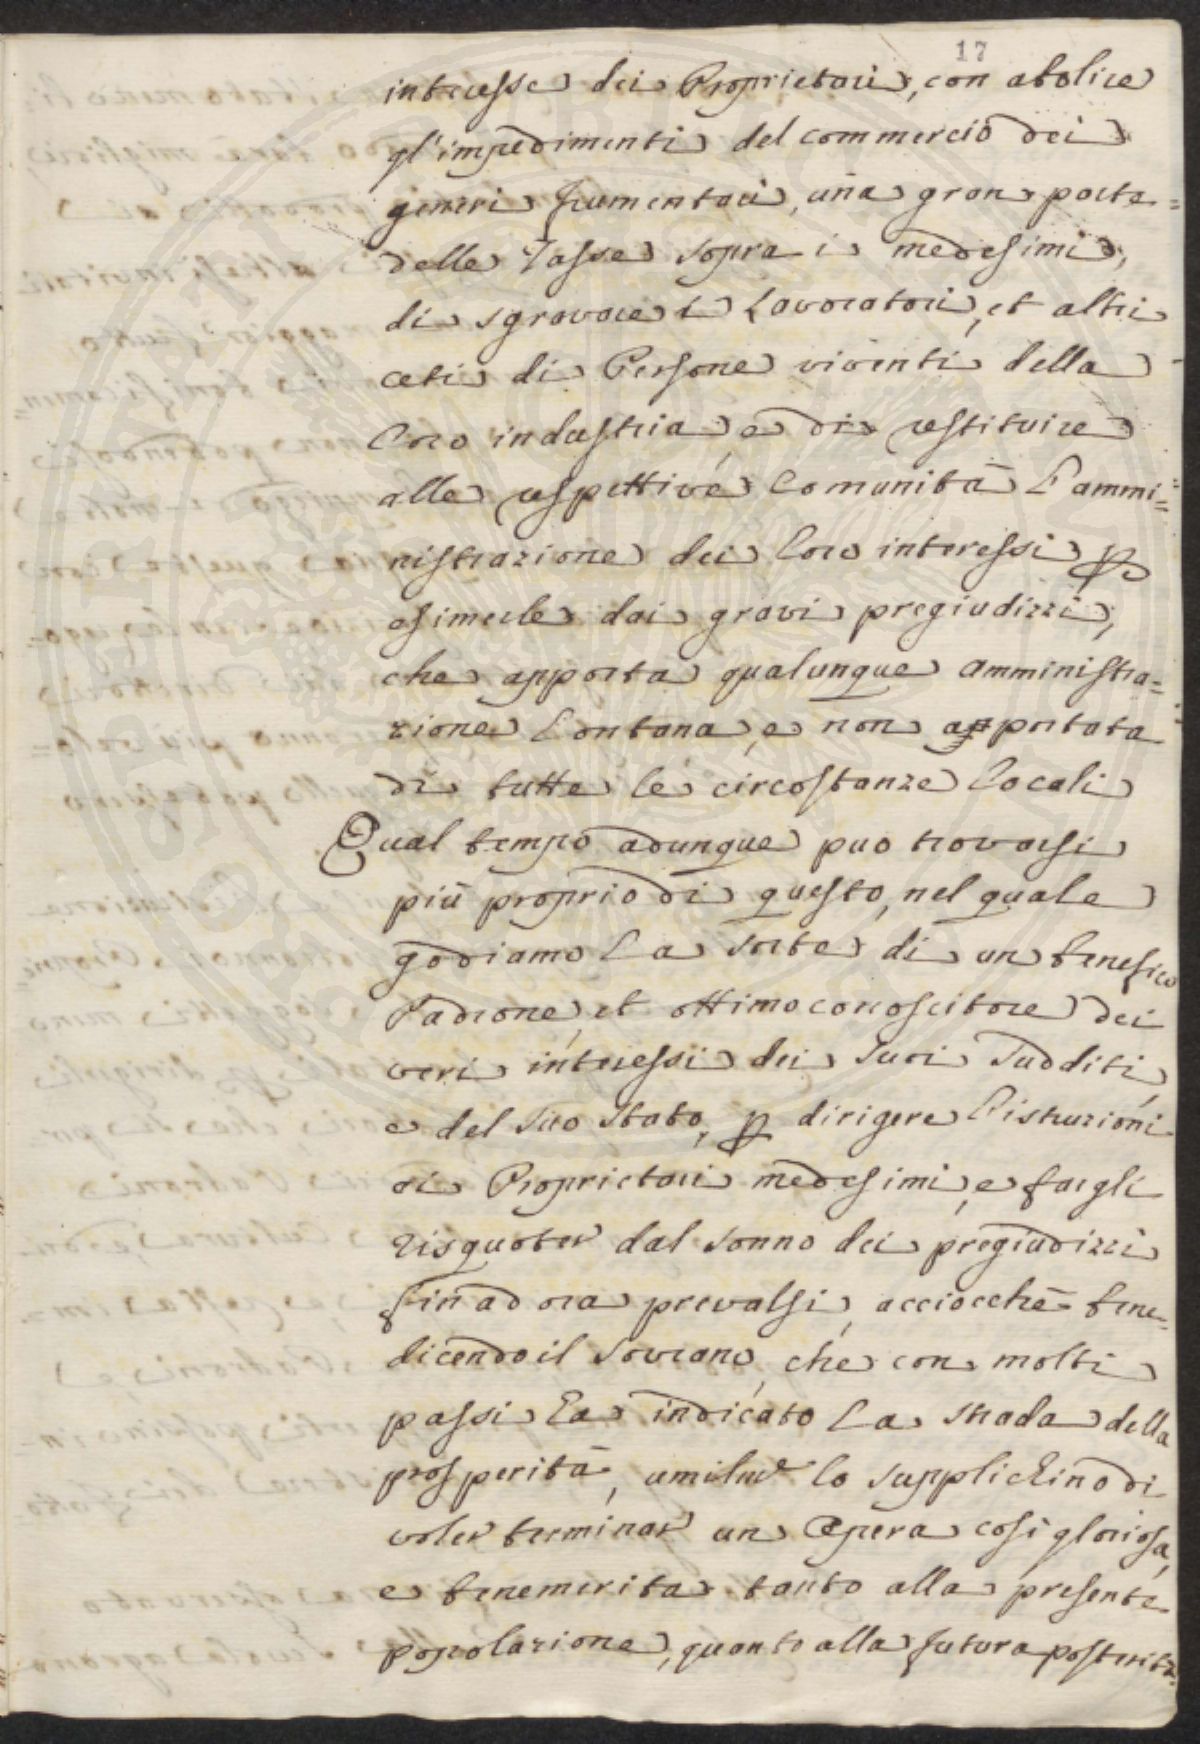 17
interesse dei Proprietarii, con abolire
gl'impedimenti del commercio dei
generi frumentarii, una gran parte
delle Tasse sopra i medesimi,
di sgravare i Lavoratori, et altri
ceti di Persone viventi della
loro industria, e di restituire
alle respettive Comunità l'ammi=
nistrazione dei loro interessi p
esimerle dai gravi pregiudizzi,
che apporta qualunque amministra=
zione lontana, e non apportata
di tutte le circostanze locali
Qual tempo adunque puo trovarsi
più proprio di questo, nel quale
godiamo la sorte di un benefico
Padrone, et ottimo conoscitore dei
veri interessi dei suoi sudditi,
e del suo stato, p dirigere l'istruzioni
ai Proprietarii medesimi, e fargli
risquoter dal sonno dei pregiudizzi
fin ad ora prevalsi, acciocchè bene=
dicendo il sovrano, che con molti
passi ha indicato la strada della
prosperità, umilmte lo supplichino di
voler terminar un Opera così gloriosa,
e benemerita tanto alla presente
popolazione, quanto alla futura posterità.